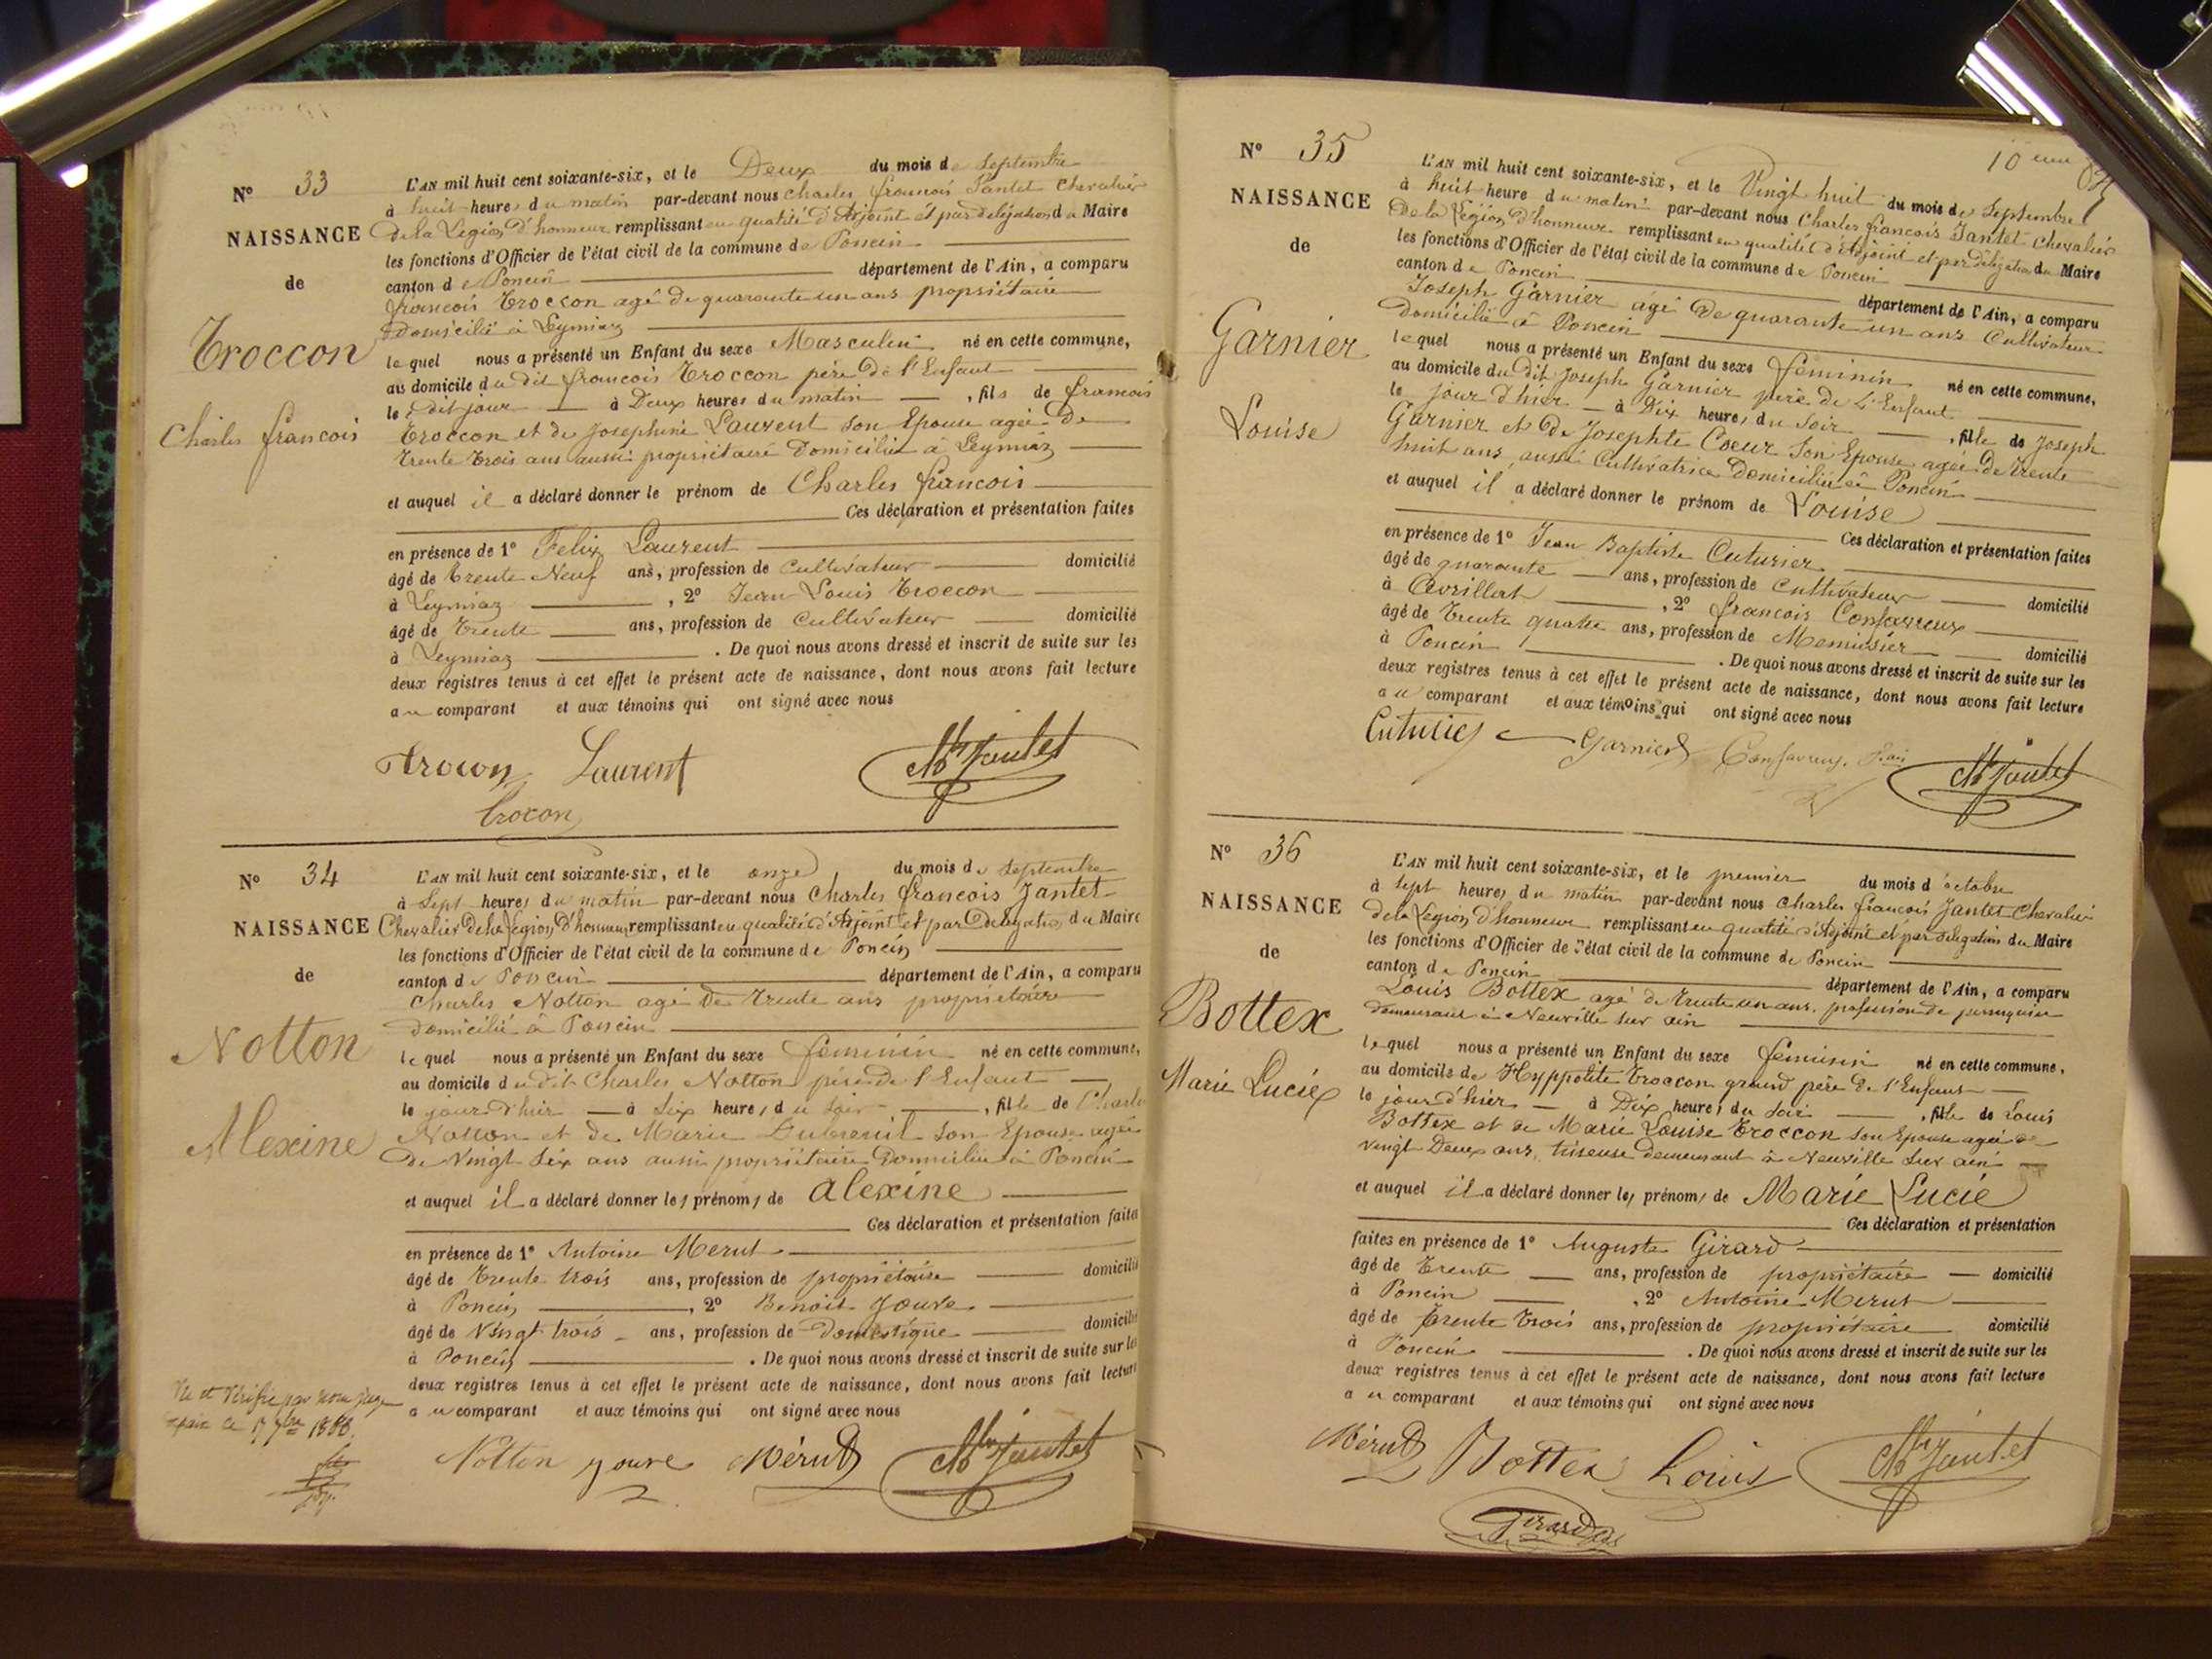 N° 33
NAISSANCE
de
Troccon
Charles françois
L'AN mil huit cent soixante-six, et le Deux du mois de Septembre
à huit heures du matin par-devant nous Charles françois Jantet Chevalier
De la Légion d'honneur remplissant en qualité d'Adjoint et par délégation du Maire
les fonctions d'Officier de l'état civil de la commune de Poncin
canton de Poncin département de l'Ain, a comparu
françois Troccon agé de quarante un ans propriétaire
Domicilié à Leymiaz
le quel nous a présenté un Enfant du sexe Masculin né en cette commune,
au domicile du dit françois Troccon père de l'Enfant
le dit jour à Deux heures du matin, fils de françois
Troccon et de Josephine Laurent son Epouse agée De
Trente Trois ans aussi propriétaire Domiciliée à Leymiaz
et auquel il a déclaré donner le prénom de Charles françois
Ces déclaration et présentation faites
en présence de 1° Felix Laurent
âgé de Trente Neuf ans, profession de Cultivateur domicilié
à Leymiaz, 2° Jean Louis Troccon
âgé de Trente ans, profession de Cultivateur domicilié
à Leymiaz. De quoi nous avons dressé et inscrit de suite sur les
deux registres tenus à cet effet le présent acte de naissance, dont nous avons fait lecture
au comparant et aux témoins qui ont signé avec nous
Laurent Jantet
N° 34
NAISSANCE
de
Notton
Alexine
L'AN mil huit cent soixante-six, et le onze du mois de Septembre
à Sept heures du matin par-devant nous Charles françois Jantet
Chevalier De la Légion d'honneur remplissant en qualité d'Adjoint et par Délégation du Maire
les fonctions d'Officier de l'état civil de la commune de Poncin
canton de Poncin département de l'Ain, a comparu
Charles Notton agé De Trente ans propriétaire
domicilié à Poncin
le quel nous a présenté un Enfant du sexe féminin né en cette commune,
au domicile du dit Charles Notton père de l'Enfant
le jour d'hier à Six heures du Soir, fille de Charle
Notton et de Marie Dubreuil son Epouse agée
de Vingt Six ans aussi propriétaire Domiciliée à Poncin
et auquel il a déclaré donner les prénoms de Alexine
Ces déclaration et présentation faites
en présence de 1° Antoine Merut
âgé de Trente trois ans, profession de propriétaire domicilié
à Poncin, 2° Benoit Jouve
âgé de Vingt trois ans, profession de Domestique domicilié
à Poncin. De quoi nous avons dressé et inscrit de suite sur les
deux registres tenus à cet effet le présent acte de naissance, dont nous avons fait lecture
au comparant et aux témoins qui ont signé avec nous
Vu et Vérifié par nous juge
Notton Jouve Mérut Jantet
N° 35
NAISSANCE
de
Garnier
Louise
L'AN mil huit cent soixante-six, et le Vingt huit du mois de Septembre
à huit heure du matin par-devant nous Charles francois Jantet Chevalier
De la Légion d'honneur remplissant en qualité d'Adjoint et par délégation du Maire
les fonctions d'Officier de l'état civil de la commune de Poncin
canton de Poncin département de l'Ain, a comparu
Joseph Garnier agé De quarante un ans Cultivateur
Domicilié à Poncin
lequel nous a présenté un Enfant du sexe féminin né en cette commune,
au domicile du dit Joseph Garnier père de l'Enfant
le jour d'hier à Dix heures du Soir, fille de Joseph
Garnier et De Josephte Coeur Son Epouse agée De trente
huit ans aussi Cultivatrice Domiciliée à Poncin
et auquel il a déclaré donner le prénom de Louise
Ces déclaration et présentation faites
en présence de 1° Jean Baptiste Cuturier
âgé de quarante ans, profession de Cultivateur domicilié
à Avrillat, 2° francois Confavreux
âgé de Trente quatre ans, profession de Menuisier domicilié
à Poncin. De quoi nous avons dressé et inscrit de suite sur les
deux registres tenus à cet effet le présent acte de naissance, dont nous avons fait lecture
au comparant et aux témoins qui ont signé avec nous
Garnier Jantet
N° 36
NAISSANCE
de
Bottex
Marie Lucie
L'AN mil huit cent soixante-six, et le premier du mois d'octobre
à Sept heures du matin par-devant nous Charles francois Jantet Chevalier
de la Légion d'honneur remplissant en qualité d'Adjoint et par délégation du Maire
les fonctions d'Officier de l'état civil de la commune de Poncin
canton de Poncin département de l'Ain, a comparu
Louis Bottex agé de Trente un ans, profession de perruquier
demeurant à Neuville sur ain
lequel nous a présenté un Enfant du sexe féminin né en cette commune,
au domicile de Hyppolite Troccon grand père De l'Enfant
le jour d'hier à Dix heures du Soir, fille de Louis
Bottex et de Marie Louise Troccon son Epouse agée de
vingt Deux ans, demeurant à Neuville sur ain
et auquel il a déclaré donner les prénoms de Marie Lucie
Ces déclaration et présentation
faites en présence de 1° Auguste Girard
âgé de Trente ans, profession de propriétaire domicilié
à Poncin, 2° Antoine Merut
âgé de Trente Trois ans, profession de propriétaire domicilié
à Poncin. De quoi nous avons dressé et inscrit de suite sur les
deux registres tenus à cet effet le présent acte de naissance, dont nous avons fait lecture
au comparant et aux témoins qui ont signé avec nous
Mérut Bottex Louis Jantet
Girard